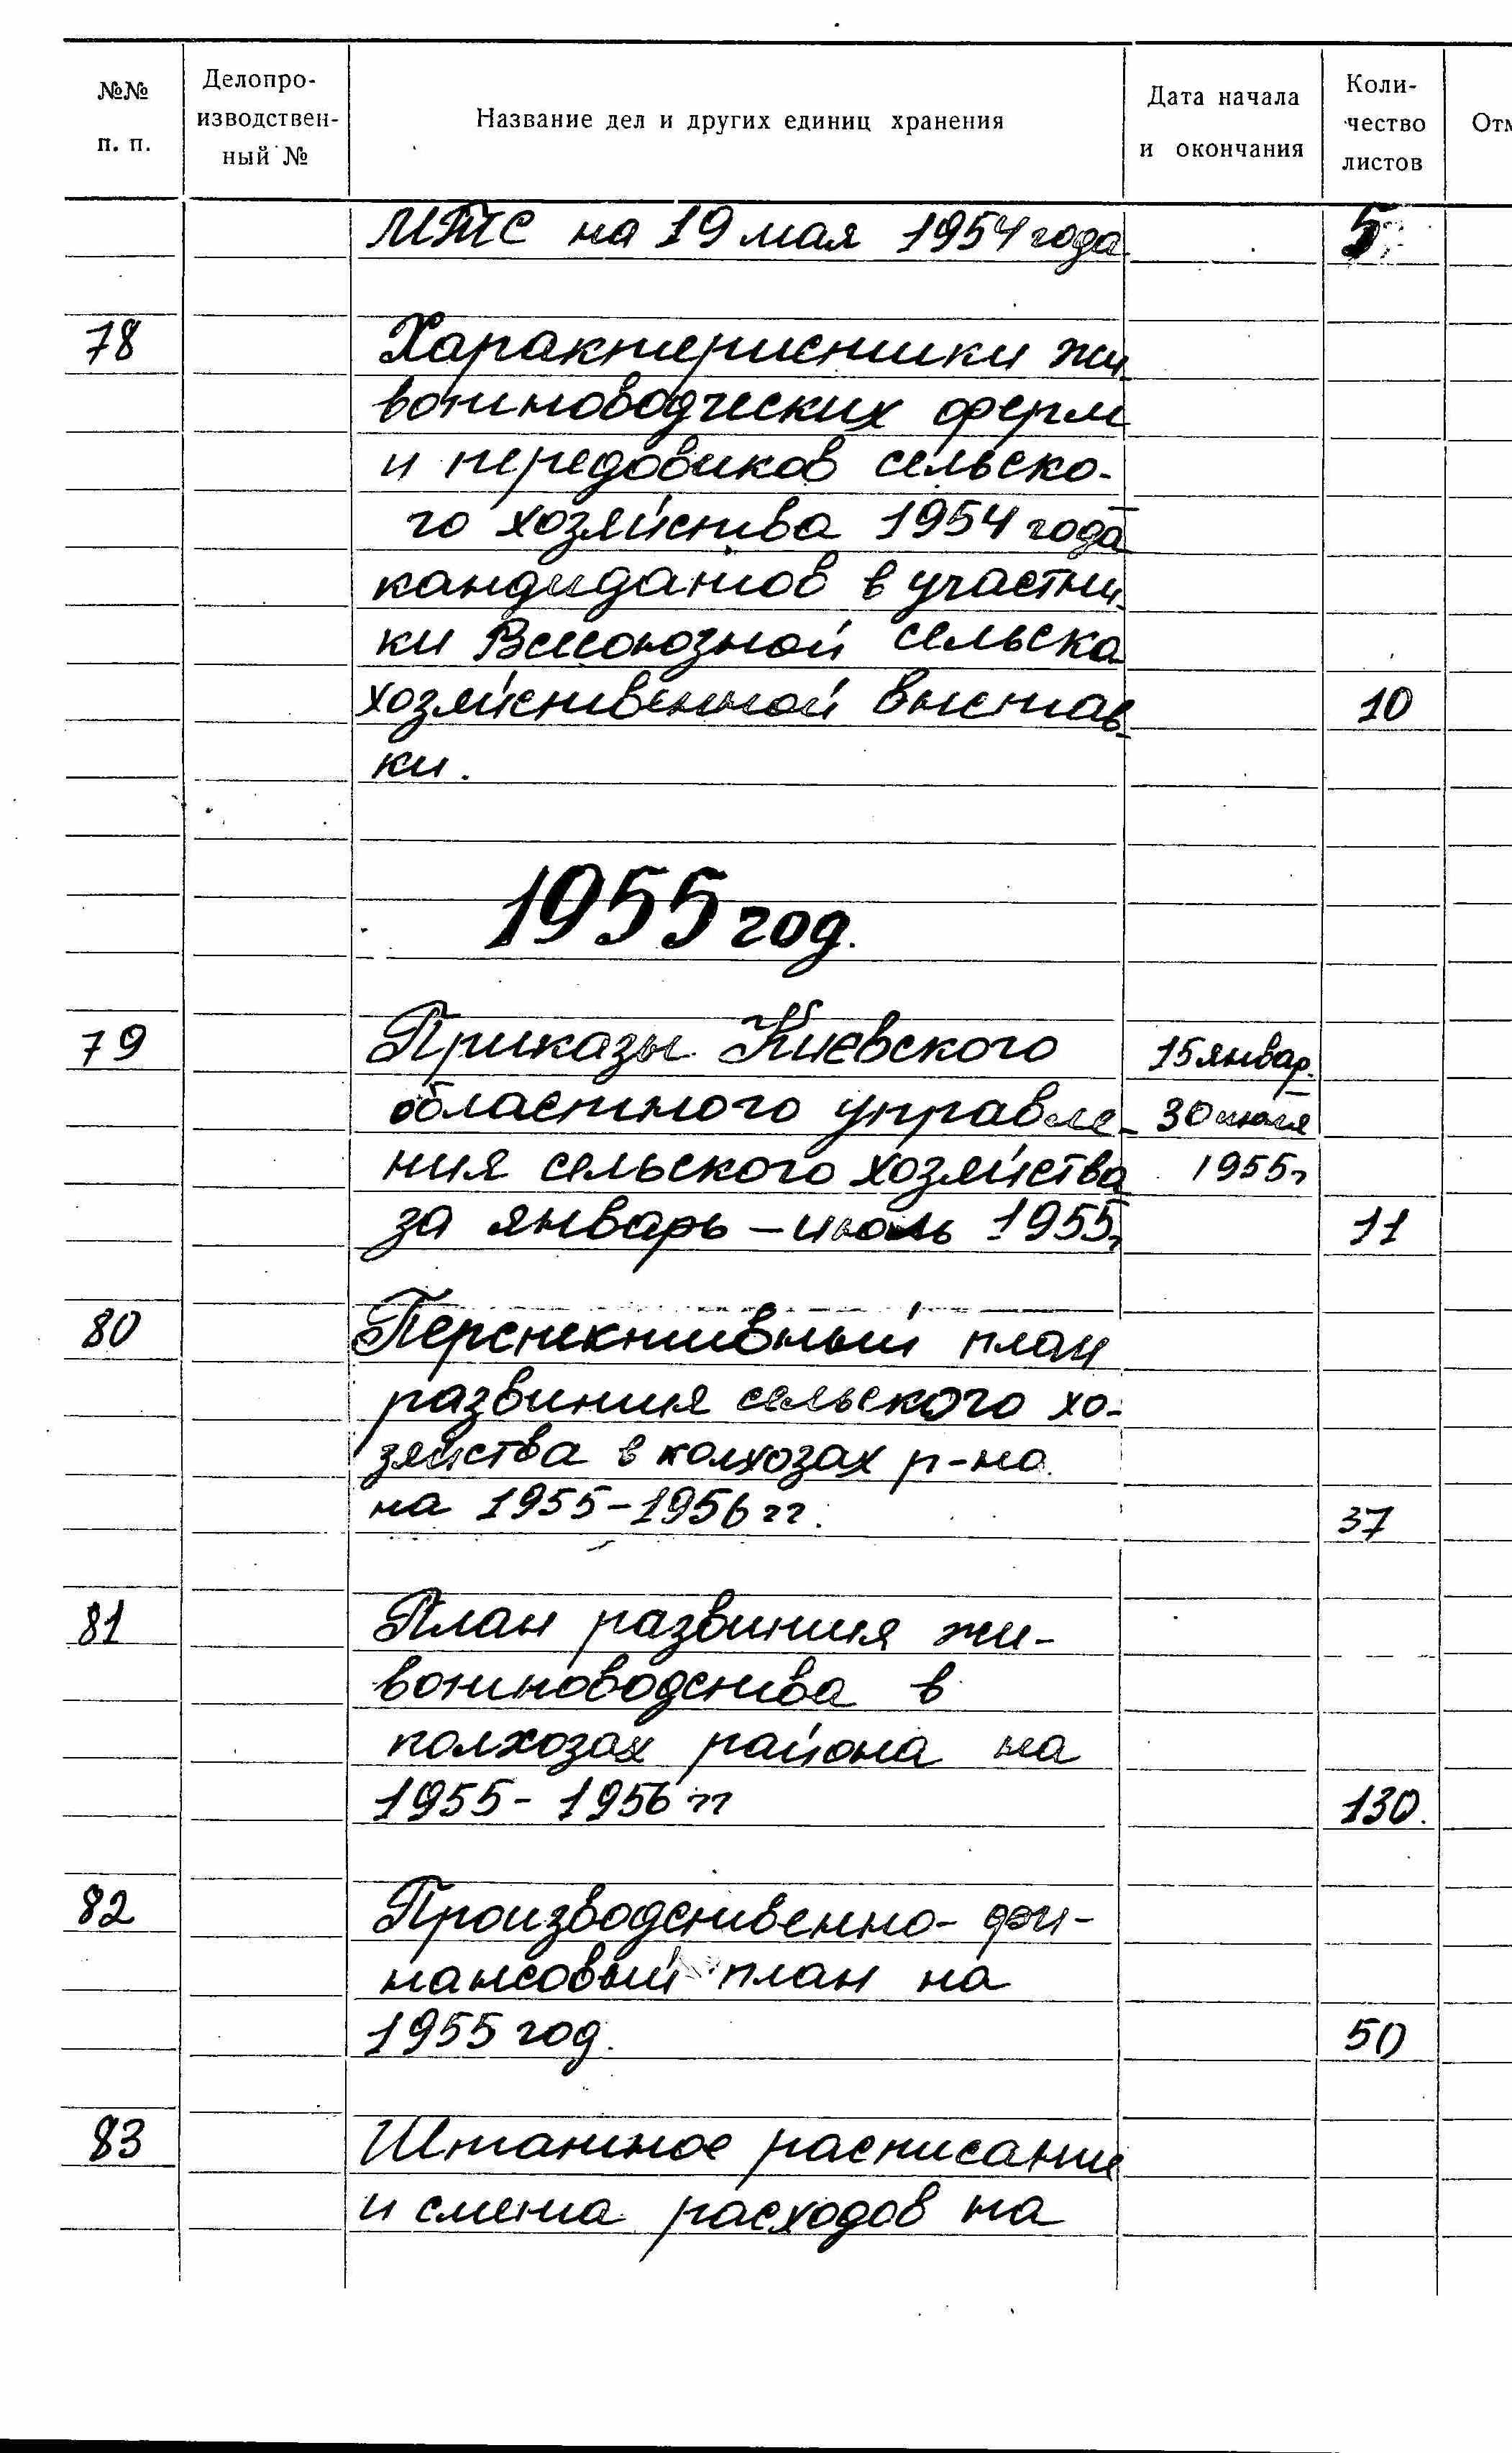 №№ п. п.
Делопро-
изводствен-
ный №
Название дел и других единиц хранения
Дата начала
и окончания
Коли-
чество
листов
Отм
МТС на 19 мая 1954 года 5
78 Характеристики жи-
вотноводческих ферм
и передовиков сельско-
го хозяйства 1954 года
кандидатов в участни-
ки Всесоюзной сельско
хозяйственной выстав- 10
ки.
1955 год.
79 Приказы Киевского 15 январ.
областного управле- 30 июля
ния сельского хозяйства 1955г
за январь – июль 1955г 11
80 Перспективный план
развития сельского хо-
зяйства в колхозах р-на
на 1955-1956 гг. 37
81 План развития жи-
вотноводства в
колхозах района на
1955-1956 гг 130.
82 Производственно-фи-
нансовый план на
1955 год. 50
83 Штатное расписание
и смета расходов на